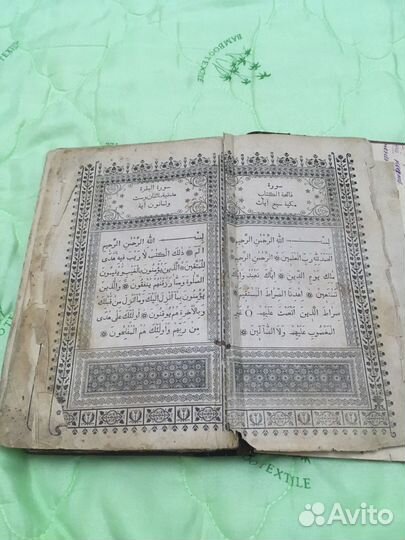 BAMBOOTEXTILE
سورة
فاتحة الكتاب
مكية سبع آيات
بسم الله الرحمن الرحيم
الحمد لله رب العلمين الرحمن الرحيم
ملك يوم الدين اياك نعبد واياك
نستعين اهدنا الصراط المستقيم
صراط الذين انعمت عليهم غير
المغضوب عليهم ولا الضالين
سورة البقرة
مائتان وست
وثمانون آية
بسم الله الرحمن الرحيم
الم ذلك الكتب لا ريب فيه هدى
للمتقين الذين يؤمنون بالغيب ويقيمون
الصلوة ومما رزقناهم ينفقون والذين
يؤمنون بما انزل اليك وما انزل من قبلك
وبالآخرة هم يوقنون اولئك على هدى
من ربهم واولئك هم المفلحون
BAMBOOTEXTILE
Avito